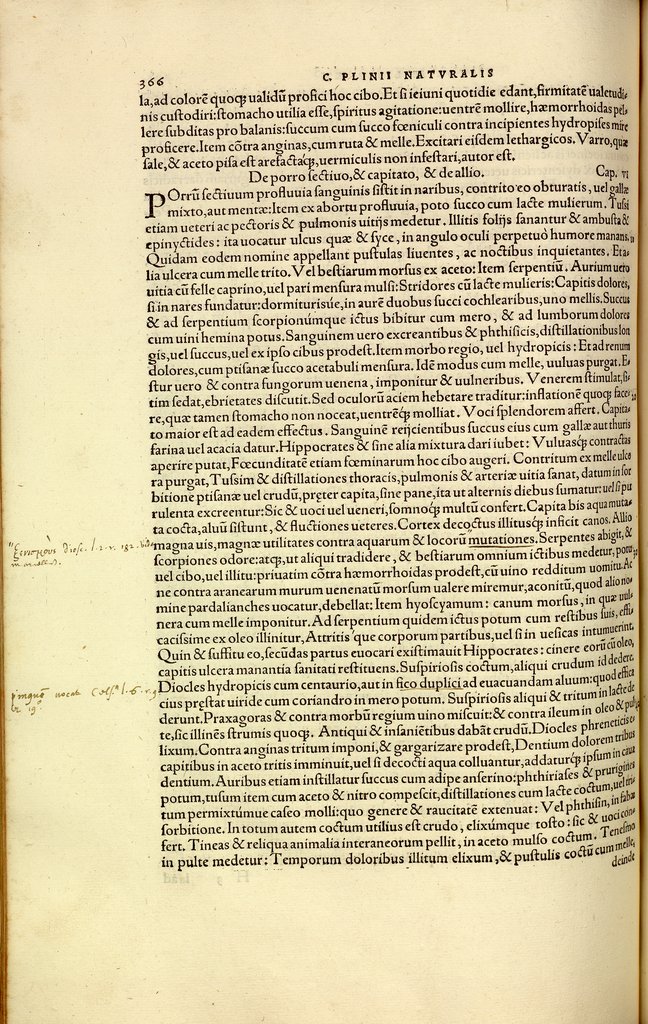 366
C. PLINII NATVRALIS
la,ad colorē quoqꝫ ualidū profici hoc cibo.Et si ieiuni quotidie edant,firmitatē ualetudi-
nis custodiri:stomacho utilia esse,spiritus agitatione:uentrē mollire,hæmorrhoidas pel-
lere subditas pro balanis:succum cum succo fœniculi contra incipientes hydropises mire
proficere.Item cōtra anginas,cum ruta & melle.Excitari eisdem lethargicos.Varro,quæ
sale,& aceto pisa est arefactaqꝫ,uermiculis non infestari,autor est.
De porro sectiuo,& capitato, & de allio. Cap. vi
POrrū sectiuum profluuia sanguinis sistit in naribus, contrito eo obturatis, uel gallæ
mixto,aut mentæ:Item ex abortu profluuia, poto succo cum lacte mulierum. Tussi
etiam ueteri ac pectoris & pulmonis uitijs medetur. Illitis folijs sanantur & ambusta &
epinyctides : ita uocatur ulcus quæ & syce, in angulo oculi perpetuò humore manans.
Quidam eodem nomine appellant pustulas liuentes, ac noctibus inquietantes. Et a-
lia ulcera cum melle trito. Vel bestiarum morsus ex aceto: Item serpentiū. Aurium uero
uitia cū felle caprino,uel pari mensura mulsi: Stridores cū lacte mulieris: Capitis dolores,
si in nares fundatur:dormiturisúe,in aurē duobus succi cochlearibus,uno mellis. Succus
& ad serpentium scorpionúmque ictus bibitur cum mero, & ad lumborum dolores
cum uini hemina potus. Sanguinem uero excreantibus & phthisicis,distillationibus lon
gis,uel succus,uel ex ipso cibus prodest.Item morbo regio, uel hydropicis : Et ad renum
dolores,cum ptisanæ succo acetabuli mensura. Idē modus cum melle, uuluas purgat. E-
stur uero & contra fungorum uenena, imponitur & uulneribus. Venerem stimulat,si-
tim sedat,ebrietates discutit. Sed oculorū aciem hebetare traditur:inflationē quoqꝫ face-
re,quæ tamen stomacho non noceat,uentrēqꝫ molliat. Voci splendorem affert. Capita-
to maior est ad eadem effectus . Sanguinē reijcientibus succus eius cum gallæ aut thuris
farina uel acacia datur.Hippocrates & sine alia mixtura dari iubet: Vuluasqꝫ contractas
aperire putat, Fœcunditatē etiam fœminarum hoc cibo augeri. Contritum ex melle ulce
ra purgat, Tussim & distillationes thoracis,pulmonis & arteriæ uitia sanat, datum in sor
bitione ptisanæ uel crudū,pręter capita, sine pane,ita ut alternis diebus sumatur: uel si pu
rulenta excreentur:Sic & uoci uel ueneri,somnoqꝫ multū confert. Capita bis aqua muta-
ta cocta,aluū sistunt, & fluctiones ueteres. Cortex decoctus illitusqꝫ inficit canos. Allio
magna uis,magnæ utilitates contra aquarum & locorū mutationes. Serpentes abigit, &
scorpiones odore:atqꝫ,ut aliqui tradidere, & bestiarum omnium ictibus medetur, potu
uel cibo,uel illitu:priuatim cōtra hæmorrhoidas prodest,cū uino redditum uomitu. Ac
ne contra aranearum murum uenenatū morsum ualere miremur,aconitū,quod alio no-
mine pardalianches uocatur,debellat: Item hyoscyamum : canum morsus, in quæ uul-
nera cum melle imponitur. Ad serpentium quidem ictus potum cum restibus suis, effi-
cacissime ex oleo illinitur, Attritis que corporum partibus,uel si in uesicas intumuerint.
Quin & suffitu eo,secūdas partus euocari existimauit Hippocrates : cinere eorū cū oleo,
capitis ulcera manantia sanitati restituens. Suspiriosis coctum,aliqui crudum id dedere.
Diocles hydropicis cum centaurio,aut in fico duplici ad euacuandam aluum:quod effica
cius pręstat uiride cum coriandro in mero potum. Suspiriosis aliqui & tritum in lacte de
derunt.Praxagoras & contra morbū regium uino miscuit: & contra ileum in oleo & pul
te,sic illinēs strumis quoqꝫ. Antiqui & insaniētibus dabāt crudū. Diocles phreneticis e-
lixum.Contra anginas tritum imponi, & gargarizare prodest, Dentium dolorem tribus
capitibus in aceto tritis imminuit,uel si decocti aqua colluantur,addaturqꝫ ipsum in caua
dentium. Auribus etiam instillatur succus cum adipe anserino:phthiriases & prurigines
potum,tusum item cum aceto & nitro compescit,distillationes cum lacte coctum,uel tri-
tum permixtúmue caseo molli:quo genere & raucitatē extenuat : Vel phthisin, in fabæ
sorbitione. In totum autem coctum utilius est crudo, elixúmque tosto : sic & uoci con-
fert. Tineas & reliqua animalia interaneorum pellit, in aceto mulso coctum. Tenesmo
in pulte medetur : Temporum doloribus illitum elixum, & pustulis coctū cum melle,
deinde